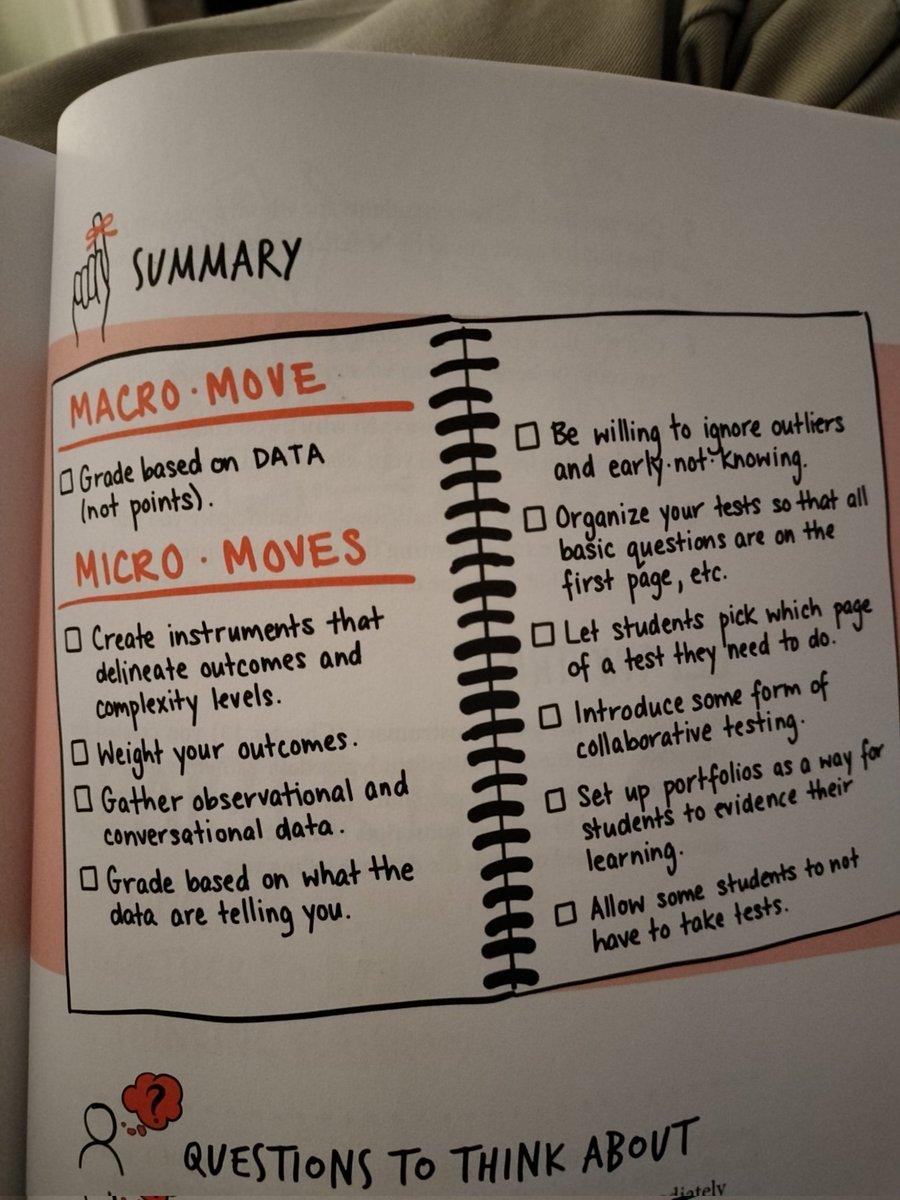 SUMMARY
MACRO·MOVE
□ Grade based on DATA
(not points).
MICRO·MOVES
□ Create instruments that
delineate outcomes and
complexity levels.
□ Weight your outcomes.
□ Gather observational and
conversational data.
□ Grade based on what the
data are telling you.
□ Be willing to ignore outliers
and early·not·knowing.
□ Organize your tests so that all
basic questions are on the
first page, etc.
□ Let students pick which page
of a test they need to do.
□ Introduce some form of
collaborative testing.
□ Set up portfolios as a way for
students to evidence their
learning.
□ Allow some students to not
have to take tests.
?
QUESTIONS TO THINK ABOUT